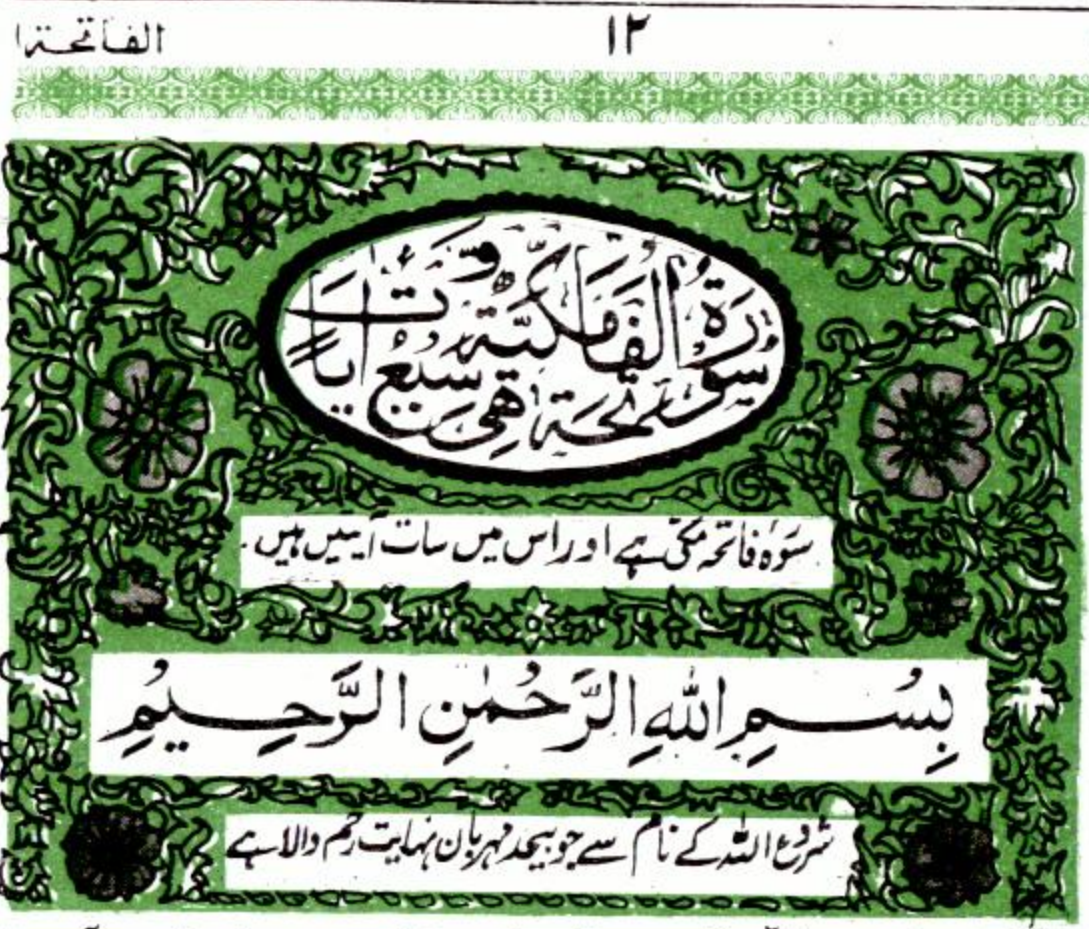 الفاتحة ١
١٢
سُوْرَةُ الْفَاتِحَةِ مَكِّيَّةٌ وَّهِىَ سَبْعُ اٰيَاتٍ
سورۂ فاتحہ مکی ہے اور اس میں سات آیتیں ہیں۔
بِسْمِ اللّٰهِ الرَّحْمٰنِ الرَّحِيْمِ
شروع اللہ کے نام سے جو بیحد مہربان نہایت رحم والا ہے